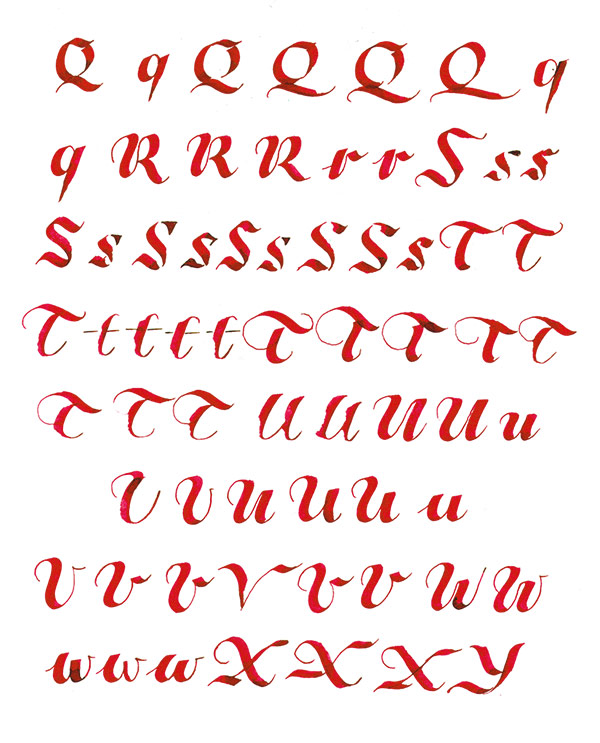 Q q Q Q Q Q q
q R R R r r S s s
S s S s S s S S s T T
T t t t t T T T T T
T T T U U U U u
U U U U U u
V v v V v v W W
w w w X X X Y